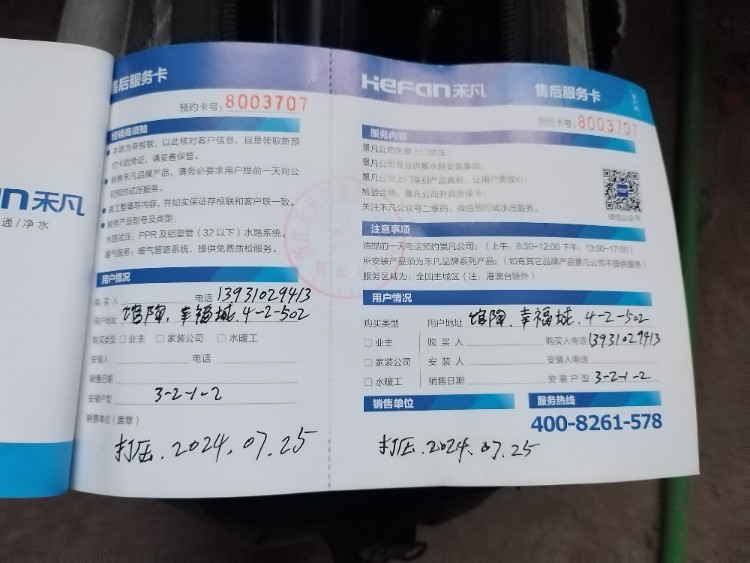 n禾凡
通/净水
售后服务卡
预约卡号: 8003707
经销商须知
本联为存根联，以此核对客户信息，且是领取新预
约卡的凭证，请妥善保管。
销售禾凡品牌产品，请务必要求用户提前一天向公
司预约试压服务。
员工整填写内容，并如实保证存根联和客户联一致。
服务产品型号及类型:
水路试压: PPR及铝塑管（32以下）水路系统。
暖气服务: 暖气管路系统，提供免费质检服务。
用户情况
购买人 电话 13931029413
用户地址 馆陶，幸福城，4-2-502
购买类型 □业主 □家装公司 □水暖工
安装人 电话
销售日期
安装户型 3-2-1-2
销售单位(盖章)
打压.2024.07.25
Hefan禾凡 售后服务卡
预约卡号: 8003707
服务内容
景凡公司免费上门试压;
景凡公司专业讲解水路安装事项;
景凡公司上门鉴别产品真假，让用户更放心;
检验合格，景凡公司开具质保卡;
关注禾凡公众号二维码，微信预约试水压服务。
微信公众号
注意事项
请提前一天电话预约景凡公司:（上午: 8:30-12:00 下午: 13:30-17:00）
所安装产品须为禾凡品牌系列产品;（如有其它品牌产品景凡公司不提供服务）
服务区域为: 全国主城区（注: 港澳台除外）
用户情况
购买类型 用户地址 馆陶，幸福城，4-2-502
□业主 购买人 购买人电话 13931029413
□家装公司 安装人 安装人电话
□水暖工 销售日期 安装户型 3-2-1-2
销售单位 服务热线
400-8261-578
打压.2024.07.25